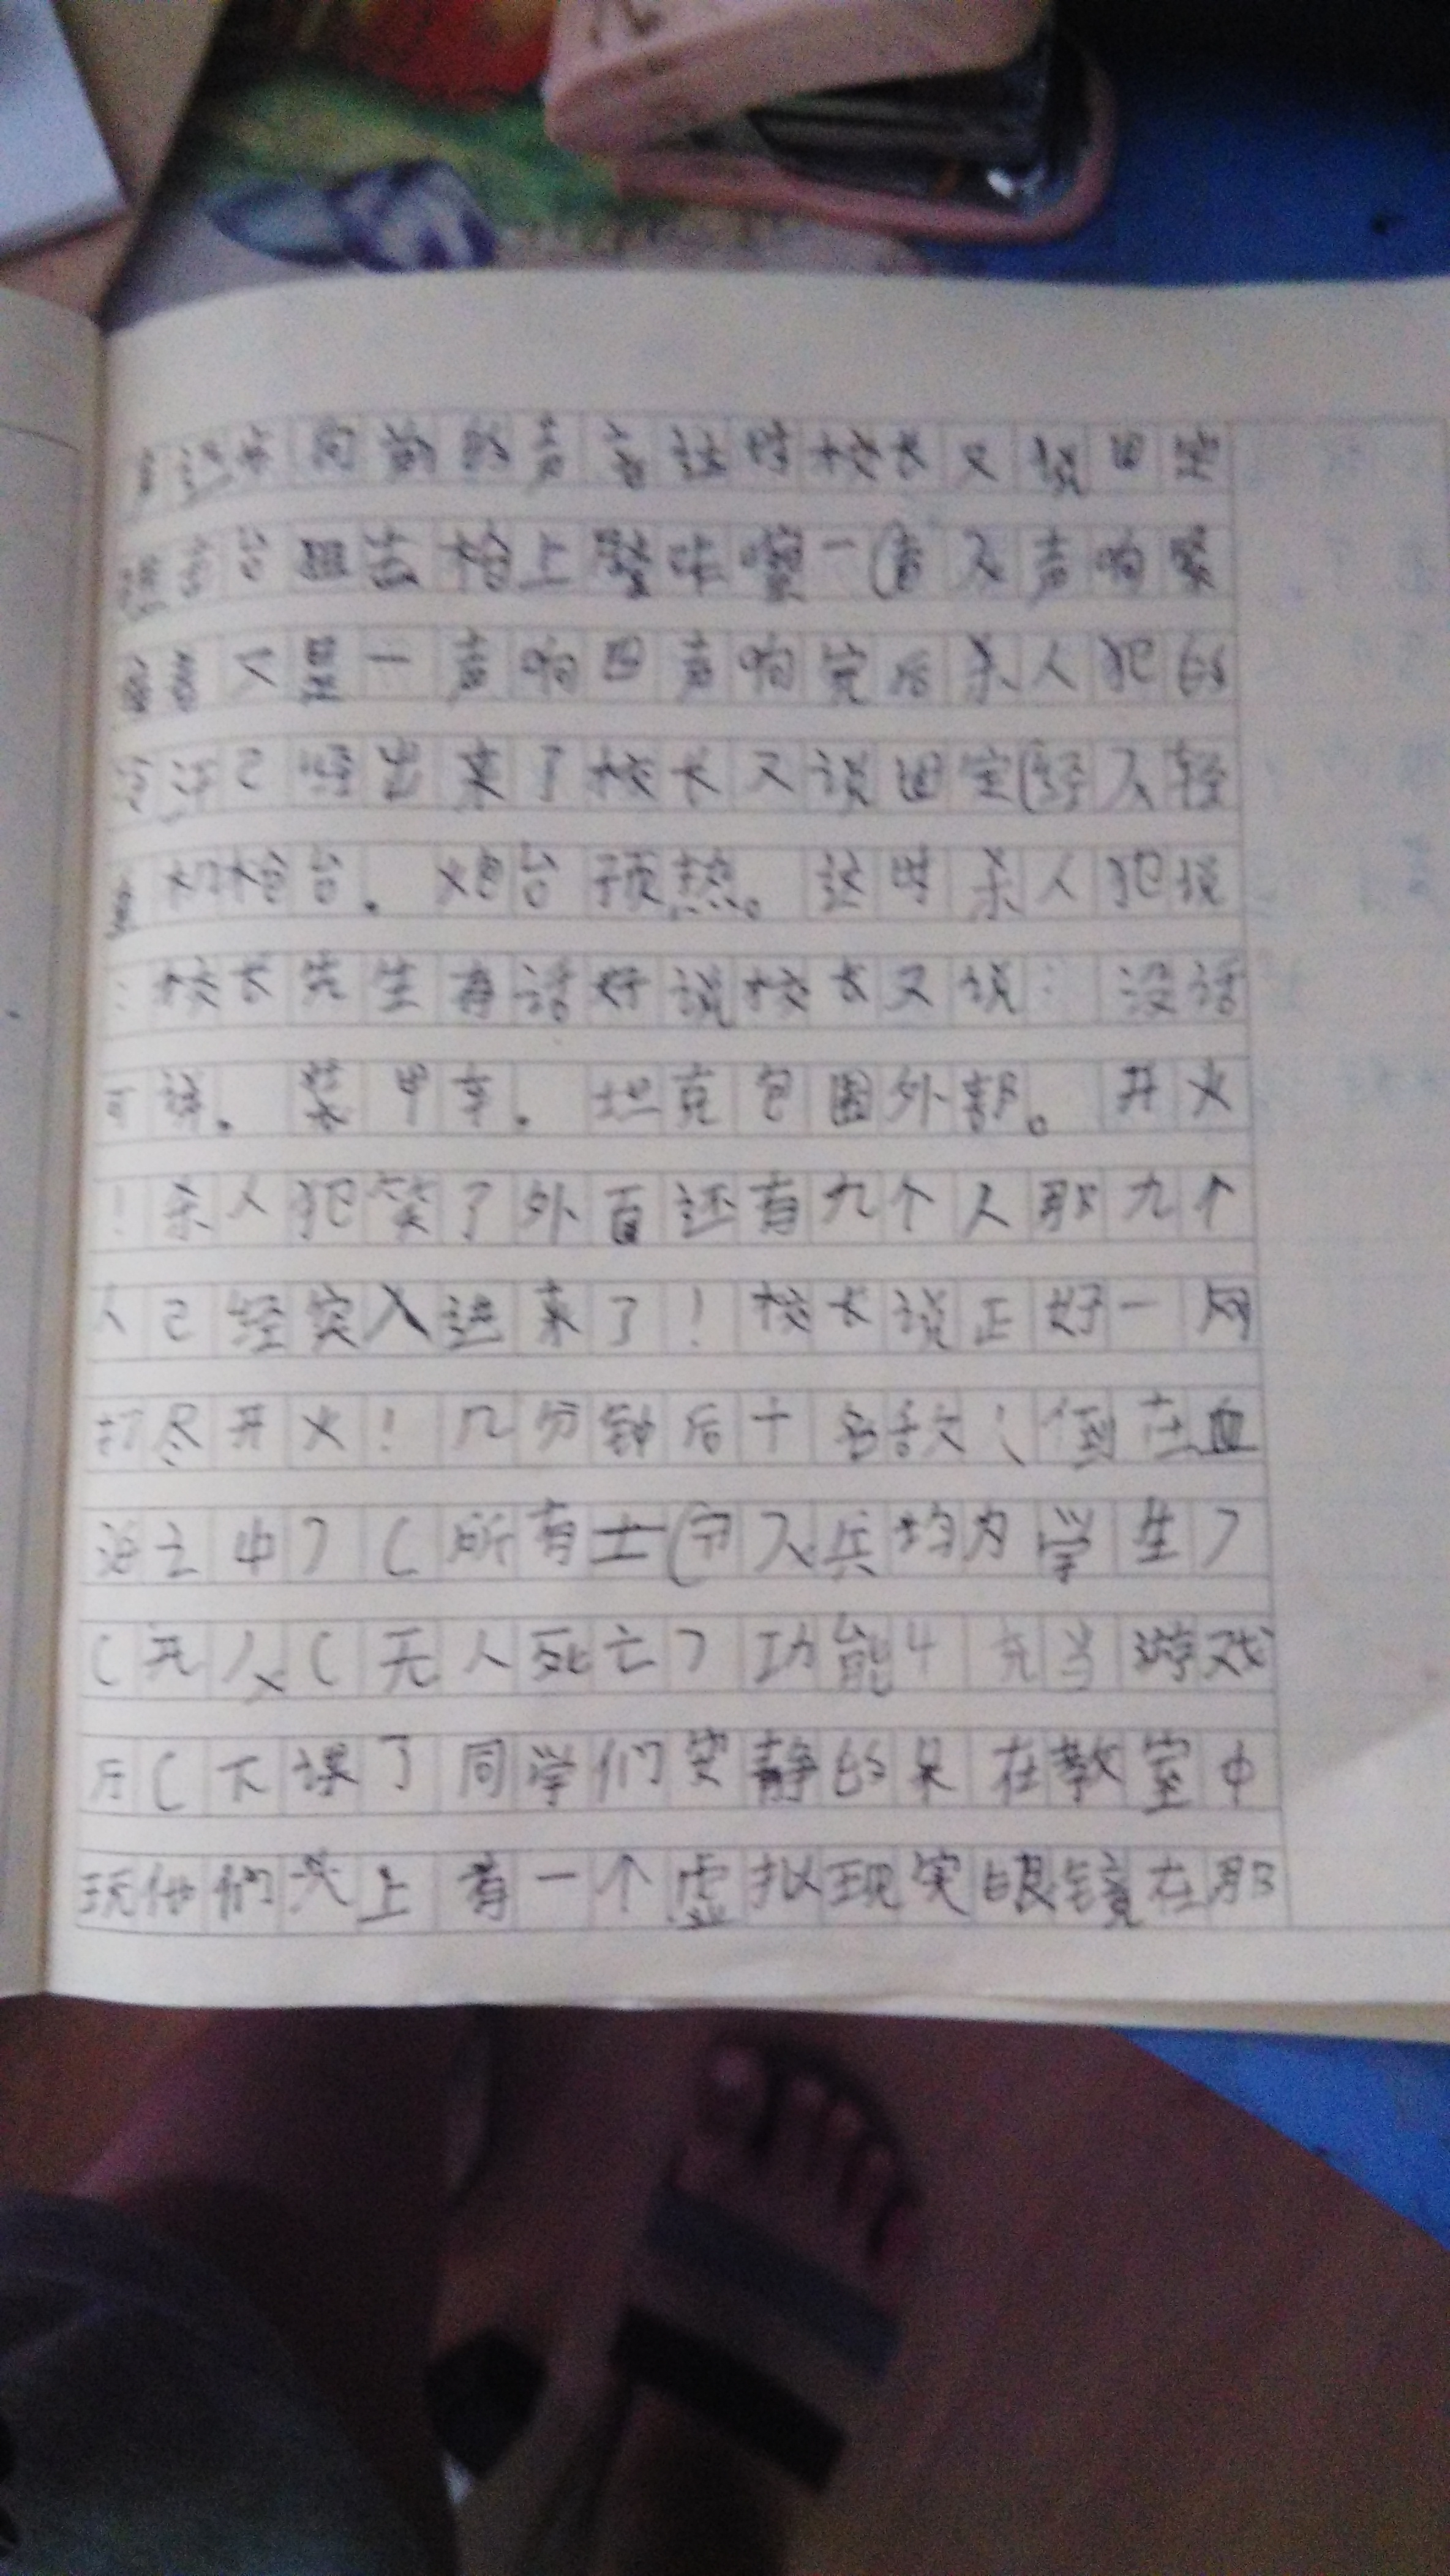 声这时校长又说四室
枪上膛咔嚓一声响紧
又是一声响四声响完后杀人犯的
已经出来了校长又说四室轻
机枪台。炮台预热。这时杀人犯说
：校长先生有话好说校长又说：没话
可讲。装甲车。坦克包围外部。开火
！杀人犯笑了外面还有九个人那九个
人已经突入进来了！校长说正好一网
打尽开火！几分钟后十名敌人倒在血
泊之中）（所有士兵均为学生）
（无人死亡）功能4 充当游戏
厅（下课了同学们安静的呆在教室中
玩他们头上有一个虚拟现实眼镜在那